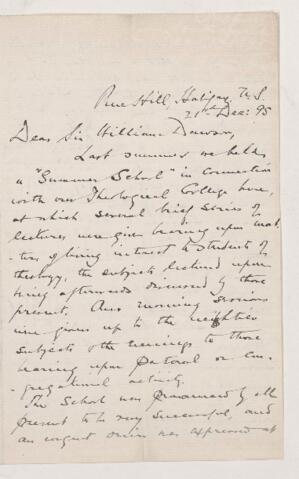 Pine Hill, Halifax, N.S.
21st Dec: 95
Dear Sir William Dawson,
Last summer we held
a "Summer School" in connection
with our Theological College here,
at which several brief series of
lectures were given bearing upon mat
-ters of living interest to students of
theology, the subjects lectured upon
being afterwards discussed by those
present. Our morning sessions
were given up to the weightier
subjects & the evenings to those
bearing upon pastoral or con-
-gregational activity.
The School was pronounced by all
present to be very successful, and
an earnest desire was expressed at